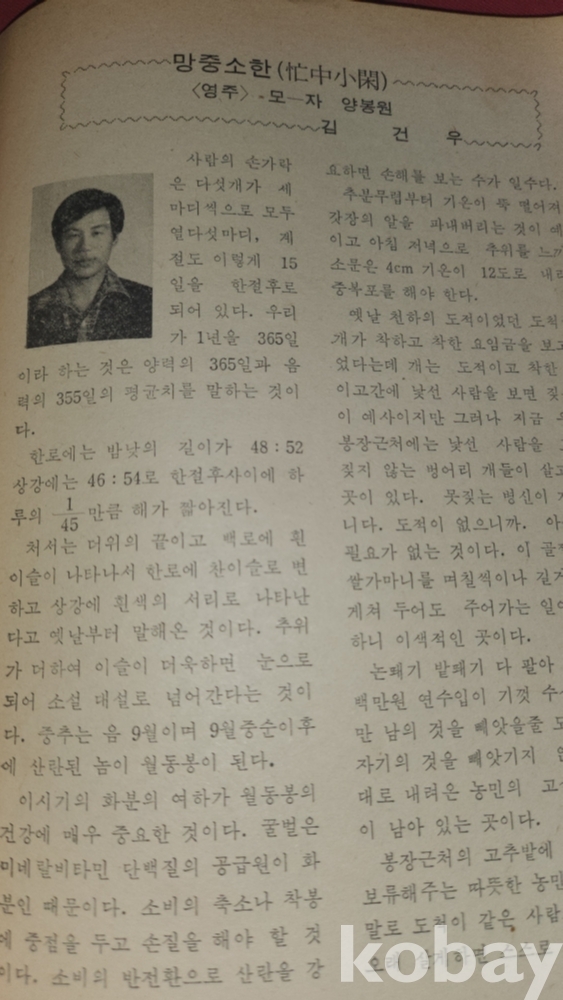 망중소한(忙中小閑)
〈영주〉-모—자 양봉원
김 건 우
사람의 손가락
은 다섯개가 세
마디씩으로 모두
열다섯마디, 계
절도 이렇게 15
일을 한절후로
되어 있다. 우리
가 1년을 365일
이라 하는 것은 양력의 365일과 음
력의 355일의 평균치를 말하는 것이
다.
한로에는 밤낮의 길이가 48:52
상강에는 46:54로 한절후사이에 하
루의 1/45만큼 해가 짧아진다.
처서는 더위의 끝이고 백로에 흰
이슬이 나타나서 한로에 찬이슬로 변
하고 상강에 흰색의 서리로 나타난
다고 옛날부터 말해온 것이다. 추위
가 더하여 이슬이 더욱하면 눈으로
되어 소설 대설로 넘어간다는 것이
다. 중추는 음 9월이며 9월중순이후
에 산란된 놈이 월동봉이 된다.
이시기의 화분의 여하가 월동봉의
건강에 매우 중요한 것이다. 꿀벌은
미네랄비타민 단백질의 공급원이 화
분인 때문이다. 소비의 축소나 착봉
에 중점을 두고 손질을 해야 할 것
이다. 소비의 반전환으로 산란을 강
요하면 손해를 보는 수가 일수다.
추분무렵부터 기온이 뚝 떨어져
갓장의 알을 파내버리는 것이 예
이고 아침 저녁으로 추위를 느끼
소문은 4cm 기온이 12도로 내려
중복포를 해야 한다.
옛날 천하의 도적이었던 도척
개가 착하고 착한 요임금을 보고
었다는데 개는 도적이고 착한
이고간에 낯선 사람을 보면 짖
이 예사이지만 그러나 지금 우
봉장근처에는 낯선 사람을
짖지 않는 벙어리 개들이 살고
곳이 있다. 못짖는 병신이
니다. 도적이 없으니까.
필요가 없는 것이다. 이 골
쌀가마니를 며칠씩이나 길거
게쳐 두어도 주어가는 일이
하니 이색적인 곳이다.
논뙈기 밭뙈기 다 팔아
백만원 연수입이 기껏 수
만 남의 것을 빼앗을줄
자기의 것을 빼앗기지
대로 내려온 농민의
이 남아 있는 곳이다.
봉장근처의 고추밭에
보류해주는 따뜻한 농민
말로 도척이 같은 사람
오래 살게하면 스스로
kobay